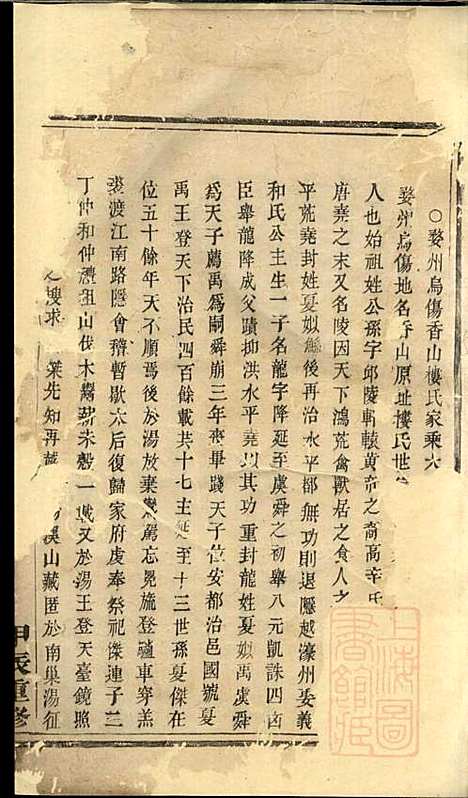 ○婺州烏傷香山樓氏家乘六
婺州烏傷地名香山原址樓氏世
人也始祖姓公孫字邱陵軒轅黃帝之裔高辛氏
唐堯之末又名陵因天下鴻荒禽獸居之食人之
平荒堯封姓夏姒鯀後再治水平都無功則退隱越濠州娶義
和氏公主生一子名龍字降延至虞舜之初舉八元凱誅四凶
臣舉龍降成父蹟抑洪水平堯以其功重封龍姓夏姒禹虞舜
爲天子薦禹爲嗣舜崩三年喪畢踐天子位安都治邑國號夏
禹王登天下治民四百餘載共十七主延至十三世孫夏傑在
位五十餘年天不順焉後於湯放棄 駕忘晃旒登 車穿羔
裘渡江南路隱會稽暫歇六后復歸家府虔奉祭祀傑連子三
丁仲和仲禮祖山伐木鬻薪未殺一 又於湯王登天臺鏡照
之搜求 葉先知再 溪山藏匿於南巢湯征
甲辰重修
上海圖書館藏